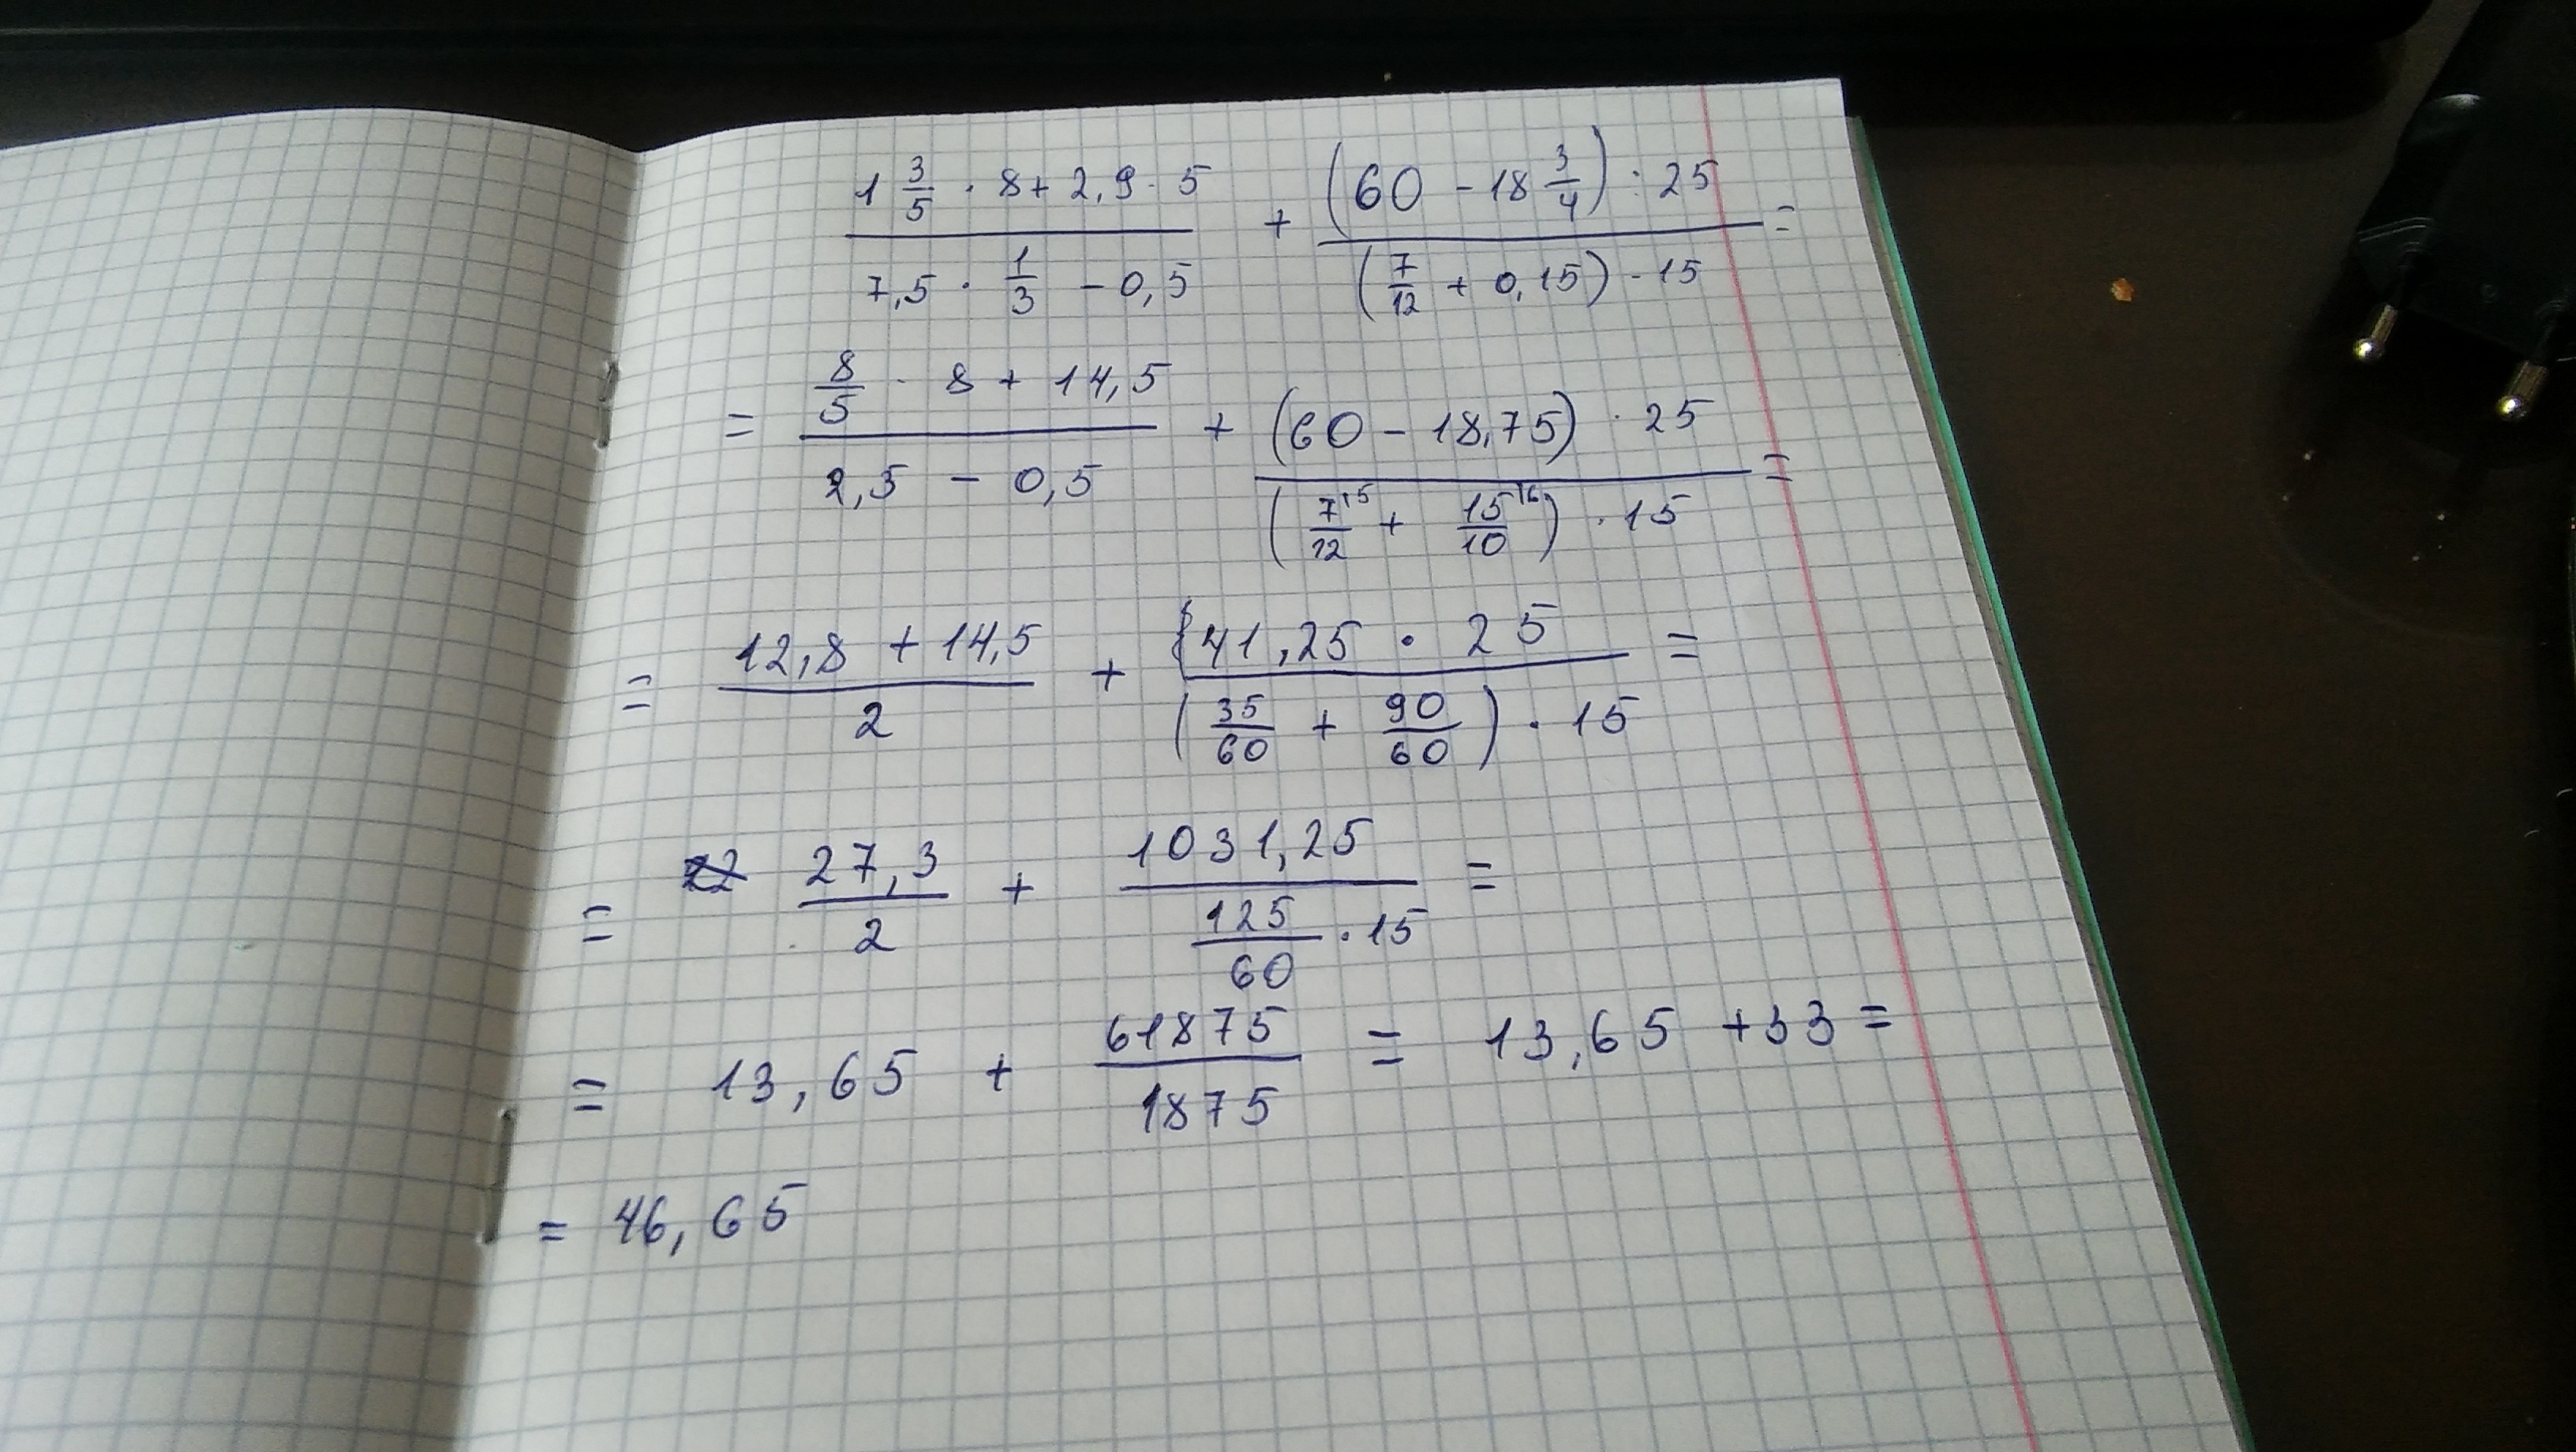 (1 3/5 · 8 + 2,9 · 5)/(7,5 · 1/3 - 0,5) + ((60 - 18 3/4) : 25)/((7/12 + 0,15) · 15) =
= (8/5 · 8 + 14,5)/(2,5 - 0,5) + ((60 - 18,75) · 25)/((7/12 ^15 + 15/10 ^16) · 15) =
= (12,8 + 14,5)/2 + (41,25 · 25)/((35/60 + 90/60) · 15) =
= 27,3/2 + 1031,25/(125/60 · 15) =
= 13,65 + 61875/1875 = 13,65 + 33 =
= 46,65